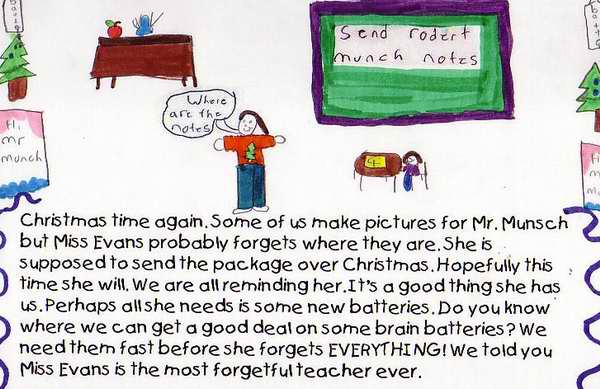 Send rodert
munch notes
Where
are the
notes
Hi
mr
munch
Christmas time again. Some of us make pictures for Mr. Munsch
but Miss Evans probably forgets where they are. She is
supposed to send the package over Christmas. Hopefully this
time she will. We are all reminding her. It's a good thing she has
us. Perhaps all she needs is some new batteries. Do you know
where we can get a good deal on some brain batteries? We
need them fast before she forgets EVERYTHING! We told you
Miss Evans is the most forgetful teacher ever.